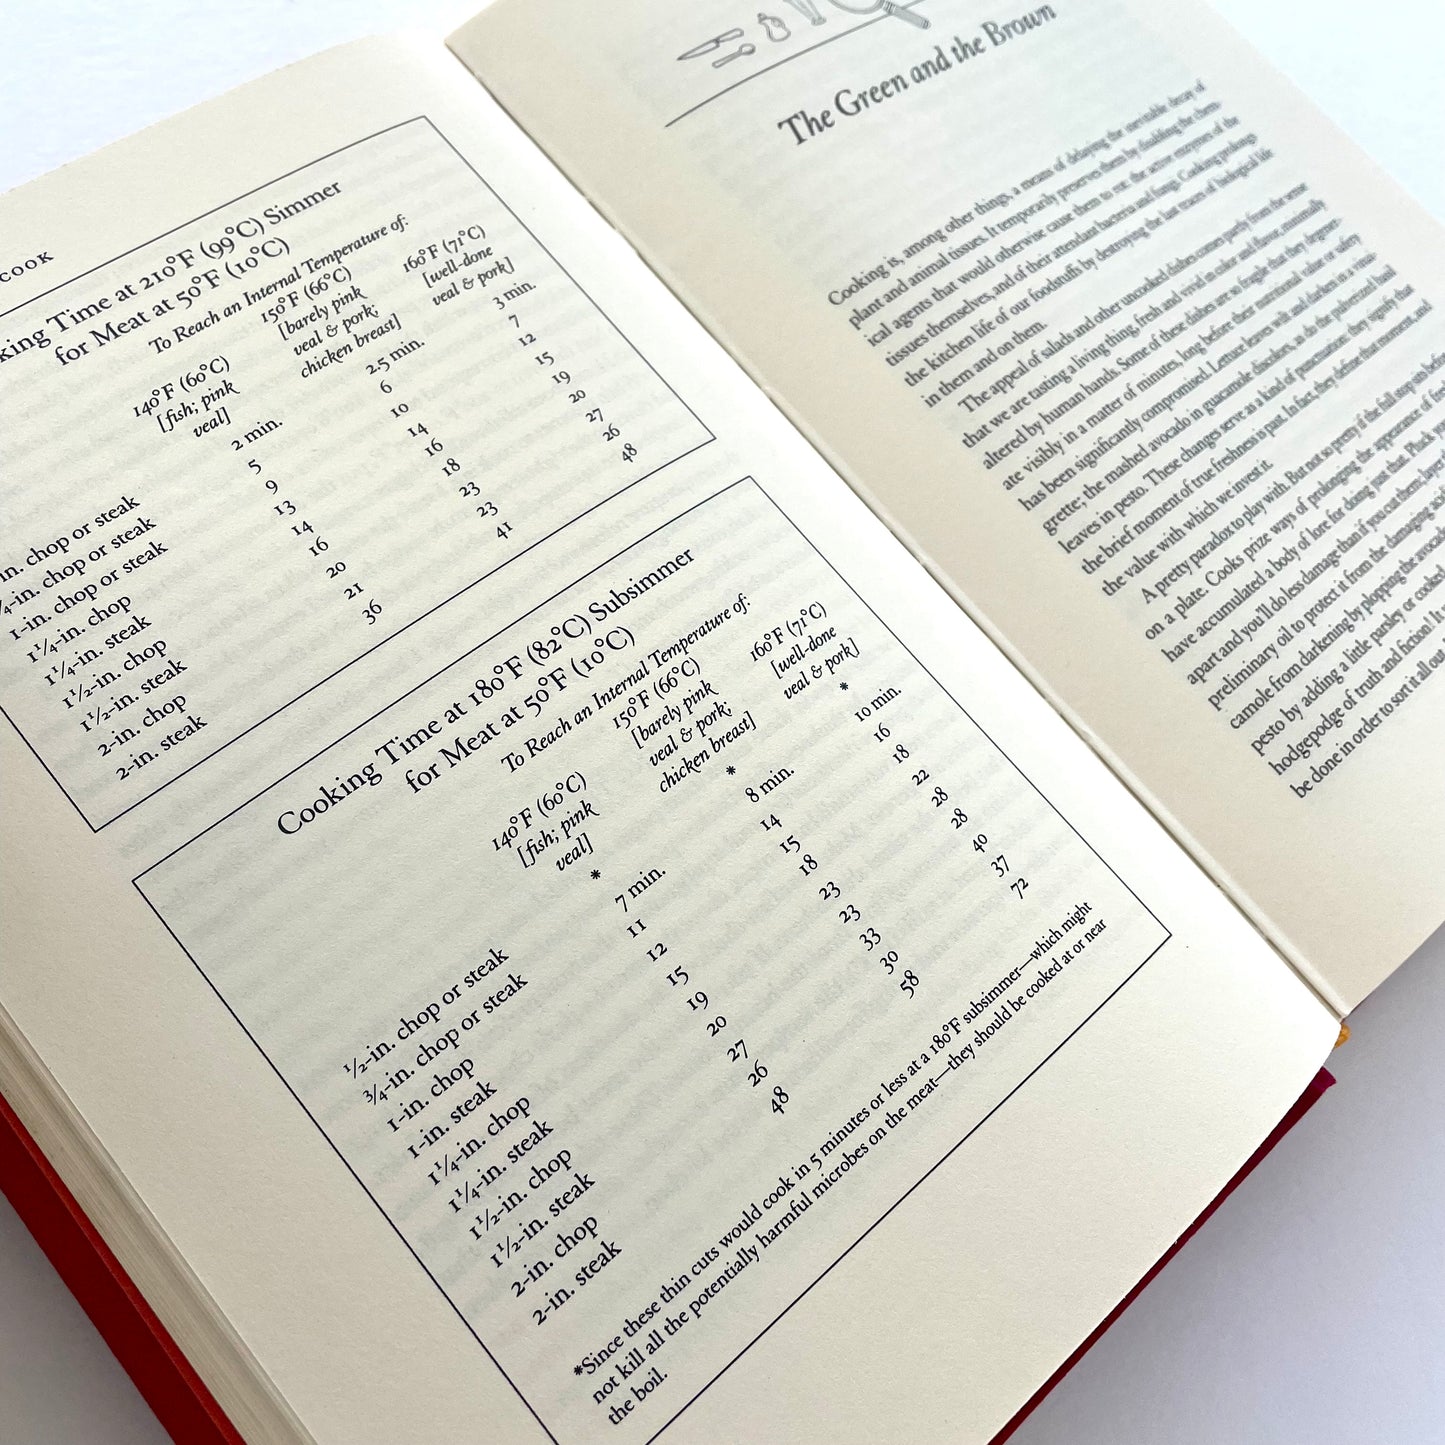 COOK
king Time at 210°F (99°C) Simmer
for Meat at 50°F (10°C)
To Reach an Internal Temperature of:
140°F (60°C) 150°F (66°C) 160°F (71°C)
[fish; pink [barely pink [well-done
veal] veal & pork; veal & pork]
chicken breast]
in. chop or steak 2 min. 2.5 min. 3 min.
/4-in. chop or steak 5 6 7
1-in. chop or steak 9 10 12
1¼-in. chop 13 14 15
1¼-in. steak 14 16 19
1½-in. chop 16 18 20
1½-in. steak 20 23 27
2-in. chop 21 23 26
2-in. steak 36 41 48
Cooking Time at 180°F (82°C) Subsimmer
for Meat at 50°F (10°C)
To Reach an Internal Temperature of:
140°F (60°C) 150°F (66°C) 160°F (71°C)
[fish; pink [barely pink [well-done
veal] veal & pork; veal & pork]
chicken breast]
½-in. chop or steak * * *
¾-in. chop or steak 7 min. 8 min. 10 min.
1-in. chop 11 14 16
1-in. steak 12 15 18
1¼-in. chop 15 18 22
1¼-in. steak 19 23 28
1½-in. chop 20 23 28
1½-in. steak 27 33 40
2-in. chop 26 30 37
2-in. steak 48 58 72
*Since these thin cuts would cook in 5 minutes or less at a 180°F subsimmer—which might
not kill all the potentially harmful microbes on the meat—they should be cooked at or near
the boil.
The Green and the Brown
Cooking is, among other things, a means of delaying the inevitable decay of
plant and animal tissues. It temporarily preserves them by disabling the chem-
ical agents that would otherwise cause them to rot: the active enzymes of the
tissues themselves, and of their attendant bacteria and fungi. Cooking prolongs
the kitchen life of our foodstuffs by destroying the last traces of biological life
in them and on them.
The appeal of salads and other uncooked dishes comes partly from the sense
that we are tasting a living thing, fresh and vivid in color and flavor, minimally
altered by human hands. Some of these dishes are so fragile that they degener-
ate visibly in a matter of minutes, long before their nutritional value or safety
has been significantly compromised. Lettuce leaves wilt and darken in a vinai-
grette; the mashed avocado in guacamole discolors, as do the pulverized basil
leaves in pesto. These changes serve as a kind of punctuation: they signify that
the brief moment of true freshness is past. In fact, they define that moment, and
the value with which we invest it.
A pretty paradox to play with. But not so pretty if the full stop sits before
on a plate. Cooks prize ways of prolonging the appearance of fresh
have accumulated a body of lore for doing just that. Pluck
apart and you'll do less damage than if you cut them; layer
preliminary oil to protect it from the damaging acid
camole from darkening by plopping the avocado
pesto by adding a little parsley or cooked
hodgepodge of truth and fiction! It
be done in order to sort it all out